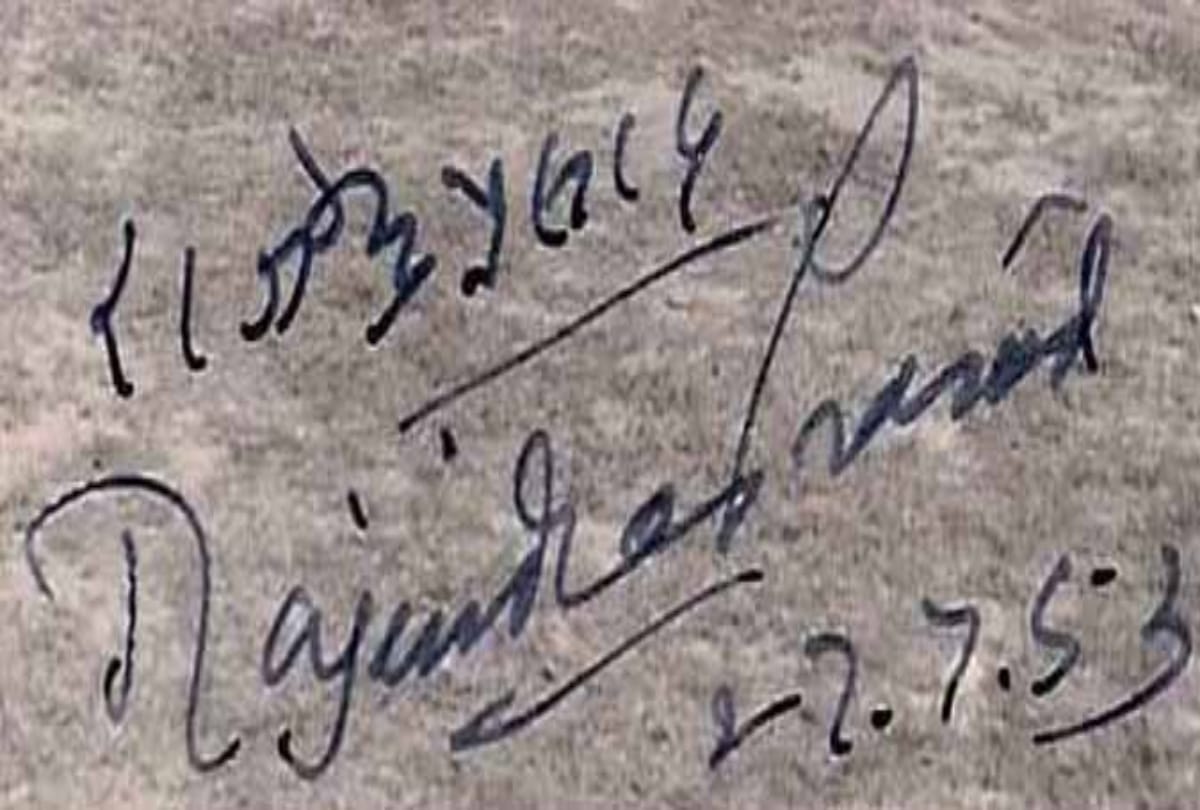 राजेन्द्र प्रसाद
Rajendra Prasad
27.7.53